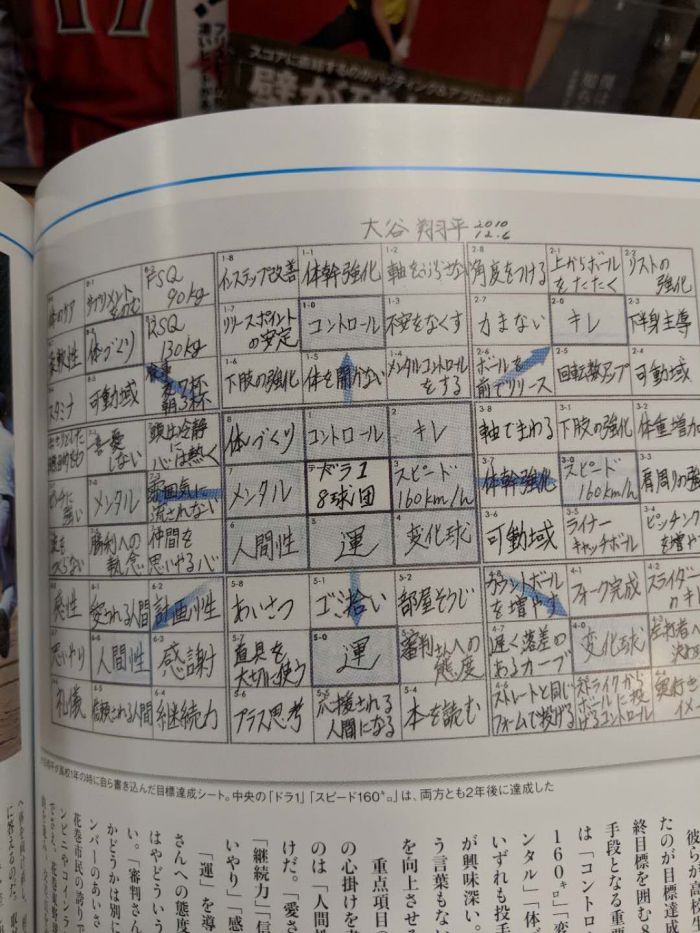 スコアに直結するのかハッティング&アプローチ
大谷 翔平 2010 12.6
体のケア
サプリメントをのむ
FSQ 90kg
1-8 インステップ改善
1-1 体幹強化
1-2 軸をぶらさない
2-8 角度をつける
2-1 上からボールをたたく
2-2 リストの強化
柔軟性
体づくり
RSQ 130kg
1-7 リリースポイントの安定
1-0 コントロール
1-3 不安をなくす
2-7 力まない
2-0 キレ
2-3 下半身主導
スタミナ
可動域
食事 夜7杯 朝3杯
1-6 下肢の強化
1-5 体を開かない
1-4 メンタルコントロールをする
2-6 ボールを前でリリース
2-5 回転数アップ
2-4 可動域
一喜一憂しない
頭は冷静に心は熱く
8 体づくり
1 コントロール
2 キレ
3-8 軸でまわる
3-1 下肢の強化
3-2 体重増加
ピンチに強い
7-0 メンタル
雰囲気に流されない
7 メンタル
ドラ1 8球団
3 スピード160km/h
3-7 体幹強化
3-0 スピード160km/h
3-3 肩周りの強
波をつくらない
勝利への執念
仲間を思いやる心
6 人間性
5 運
4 変化球
3-6 可動域
3-5 ライナーキャッチボール
3-4 ピッチングを増や
感性
6-1 愛される人間
6-2 計画性
5-8 あいさつ
5-1 ゴミ拾い
5-2 部屋そうじ
カウントボールを増やす
4-1 フォーク完成
4-2 スライダーのキレ
思いやり
6-0 人間性
6-3 感謝
5-7 道具を大切に使う
5-0 運
審判さんへの態度
4-7 遅く落差のあるカーブ
4-0 変化球
左打者へ決め
礼儀
6-5 信頼される人間
6-4 継続力
5-6 プラス思考
5-5 応援される人間になる
5-4 本を読む
4-6 ストレートと同じフォームで投げる
4-5 ストライクからボールに投げるコントロール
4-4 奥行きイメ
が高校1年の時に自ら書き込んだ目標達成シート。中央の「ドラ1」「スピード160㌔」は、両方とも2年後に達成した
彼らが高校生
たのが目標達成
終目標を囲む8
手段となる重要
は「コントロ
160㌔」「変
ンタル」「体づ
いずれも投手
が興味深い。
う言葉もない
を向上させる
重点項目の
の心掛けを
のは「人間性
けだ。「愛さ
いやり」「感
「継続力」「信
「運」を導
さんへの態度
はやどういう
い。「審判さん
かどうかは別に
ンバーのあいさ
ンビニやコインラ
花巻市民の誇りで